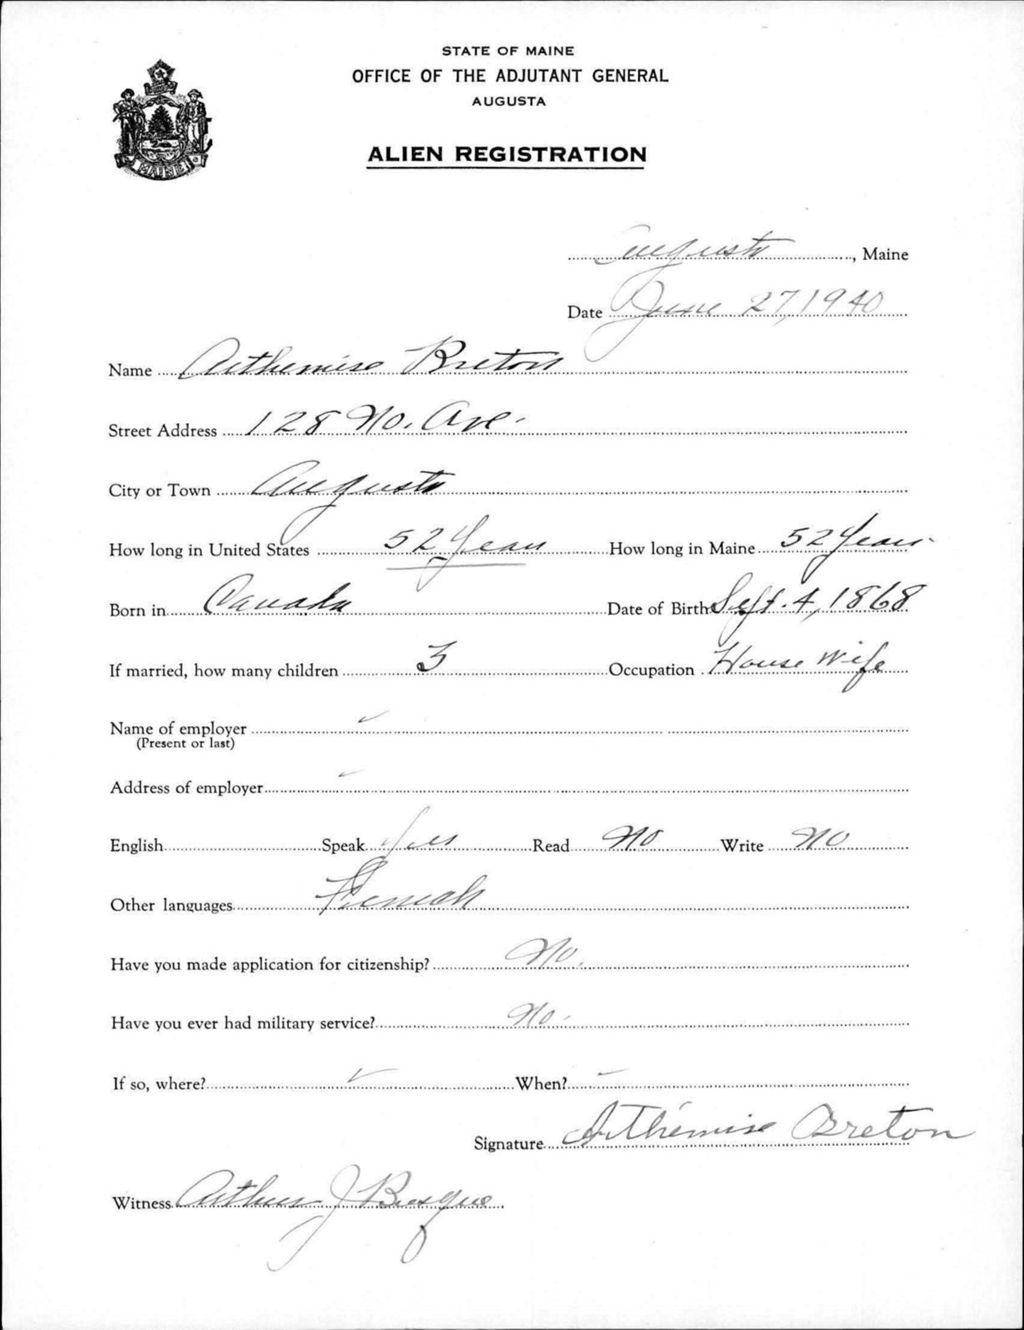 STATE OF MAINE
OFFICE OF THE ADJUTANT GENERAL
AUGUSTA
ALIEN REGISTRATION
MAINE
Augusta, Maine
Date June 27, 1940
Name Arthemise Breton
Street Address 128 No. Ave.
City or Town Augusta
How long in United States 52 Years How long in Maine 52 Years
Born in Canada Date of Birth Sept. 4, 1868
If married, how many children 3 Occupation House Wife
Name of employer
(Present or last)
Address of employer
English Speak Yes Read No Write No
Other languages French
Have you made application for citizenship? No.
Have you ever had military service? No.
If so, where? When?
Signature Arthémise Breton
Witness Arthur J.